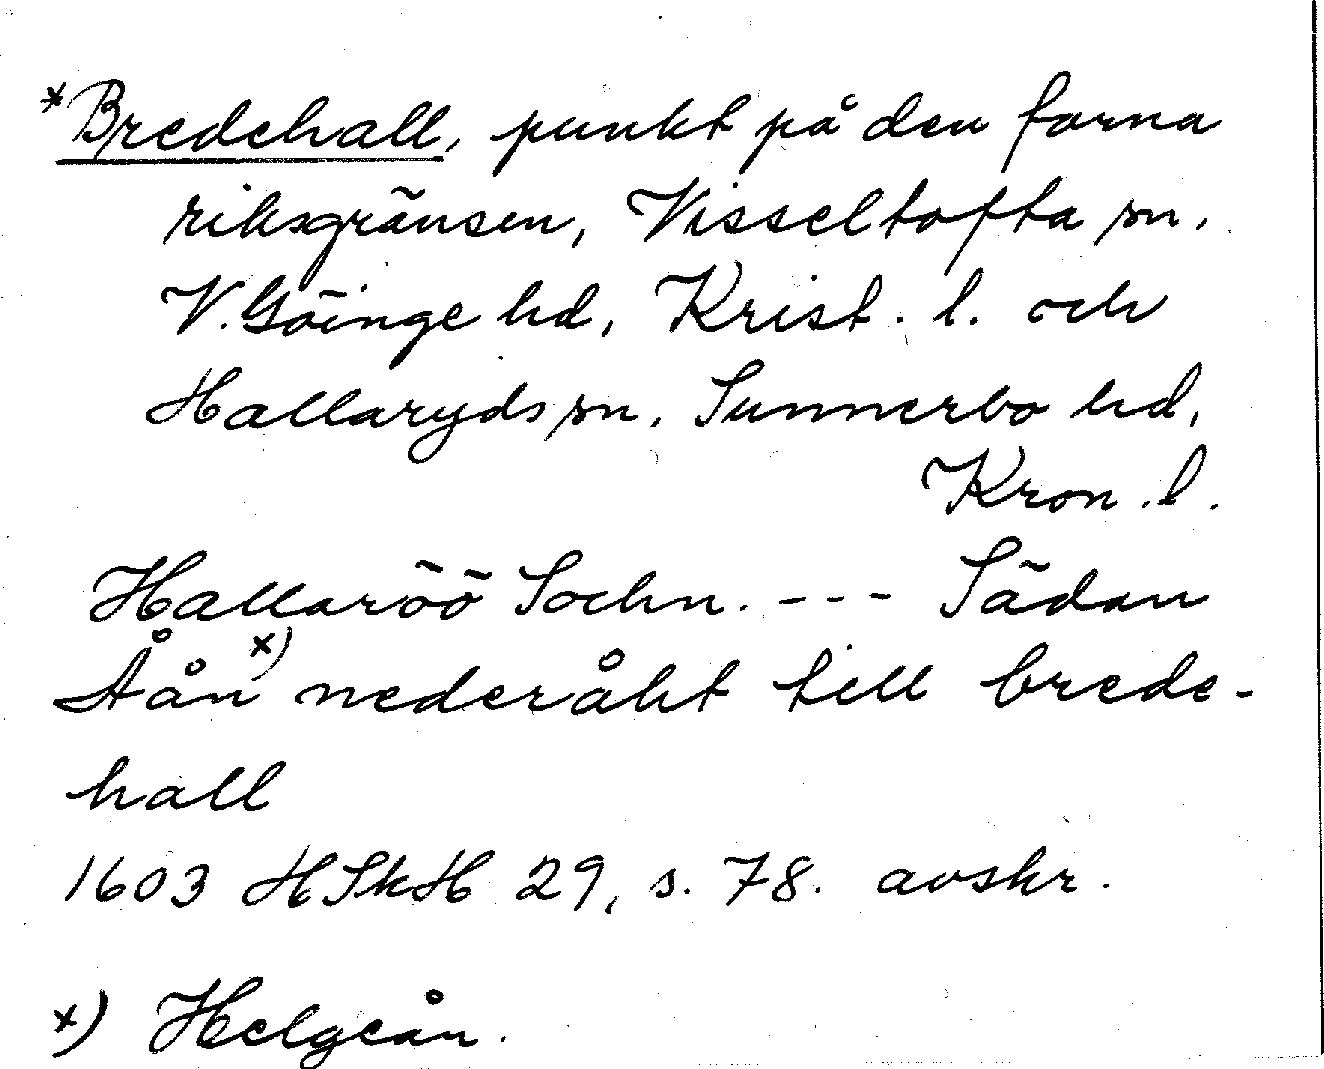 *Bredehall, punkt på den forna
riksgränsen, Visseltofta sn.
V. Göinge hd, Krist. l. och
Hallaryds sn. Sunnerbo hd,
Kron. l.
Hallaröö Sochn. - - - Sädan
Åån x) nederåht till brede-
hall
1603 HSkH 29, s. 78. avskr.
x) Helgeån.